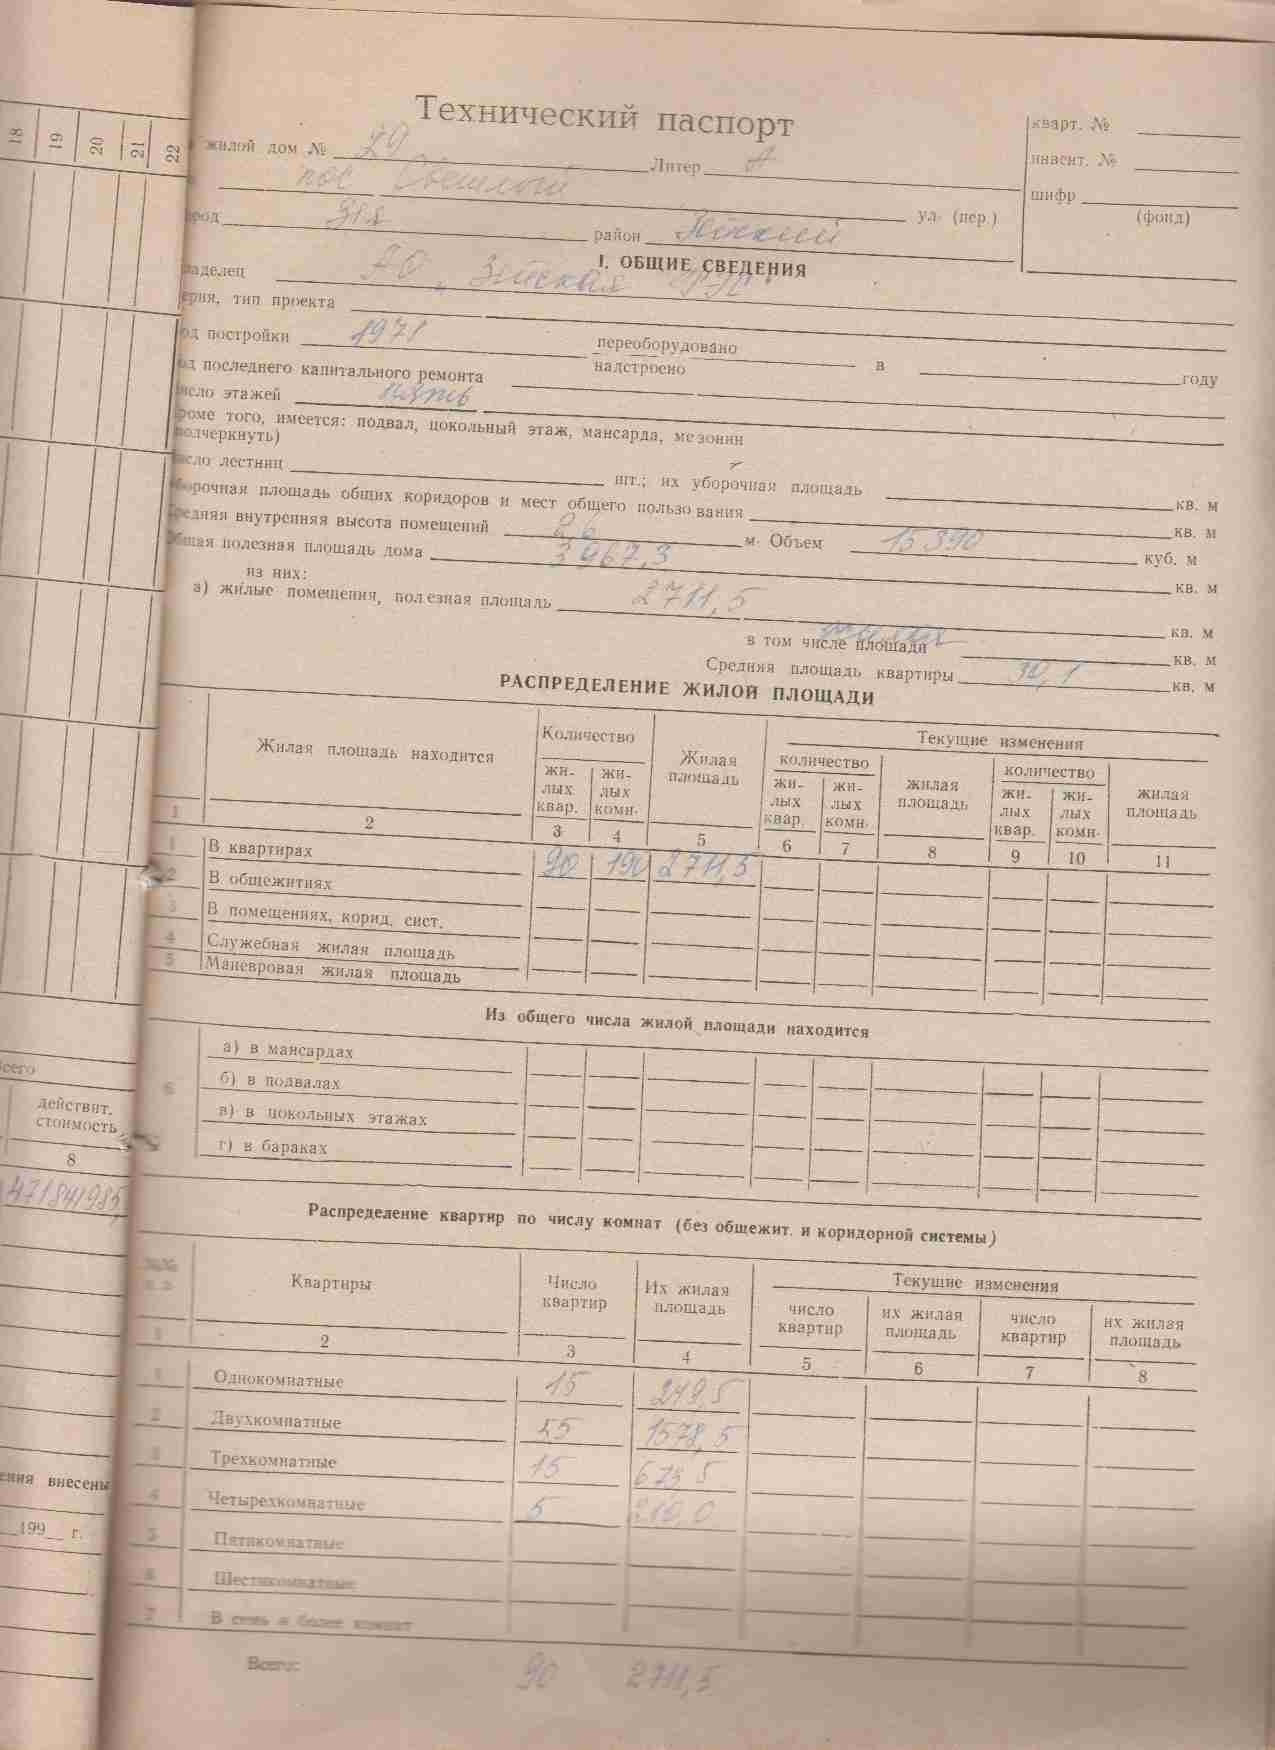 18 19 20 21 22
Технический паспорт
жилой дом № 29 Литер А
пос Светлый ул. (пер.)
ород Зея район
кварт. №
инвент. №
шифр
(фонд)
I. ОБЩИЕ СВЕДЕНИЯ
ладелец АО „Зейская ГЭС"
ерия, тип проекта
од постройки 1971 переоборудовано
надстроено в году
од последнего капитального ремонта
исло этажей пять
роме того, имеется: подвал, цокольный этаж, мансарда, мезонин
подчеркнуть)
исло лестниц шт.; их уборочная площадь кв. м
борочная площадь общих коридоров и мест общего пользования кв. м
редняя внутренняя высота помещений 2,6 м. Объем 15390 куб. м
Общая полезная площадь дома 3967,3 кв. м
из них:
а) жилые помещения, полезная площадь 2711,5 кв. м
в том числе площади кв. м
Средняя площадь квартиры 30,1 кв. м
РАСПРЕДЕЛЕНИЕ ЖИЛОЙ ПЛОЩАДИ
Жилая площадь находится Количество Жилая площадь Текущие изменения
количество жилая площадь количество жилая площадь
жи-лых квар. жи-лых комн. жи-лых квар. жи-лых комн. жи-лых квар. жи-лых комн.
1 2 3 4 5 6 7 8 9 10 11
1 В квартирах 90 190 2711,5
2 В общежитиях
3 В помещениях, корид. сист.
4 Служебная жилая площадь
5 Маневровая жилая площадь
Из общего числа жилой площади находится
а) в мансардах
6 б) в подвалах
в) в цокольных этажах
г) в бараках
сего
действит.
стоимость
8
471841985
Распределение квартир по числу комнат (без общежит. и коридорной системы)
№№ п.п. Квартиры Число квартир Их жилая площадь Текущие изменения
число квартир их жилая площадь число квартир их жилая площадь
1 2 3 4 5 6 7 8
1 Однокомнатные 15 249,5
2 Двухкомнатные 55 1578,5
3 Трехкомнатные 15 673,5
4 Четырехкомнатные 5 210,0
5 Пятикомнатные
6 Шестикомнатные
7 В семь и более комнат
Всего: 90 2711,5
ения внесены
199 г.